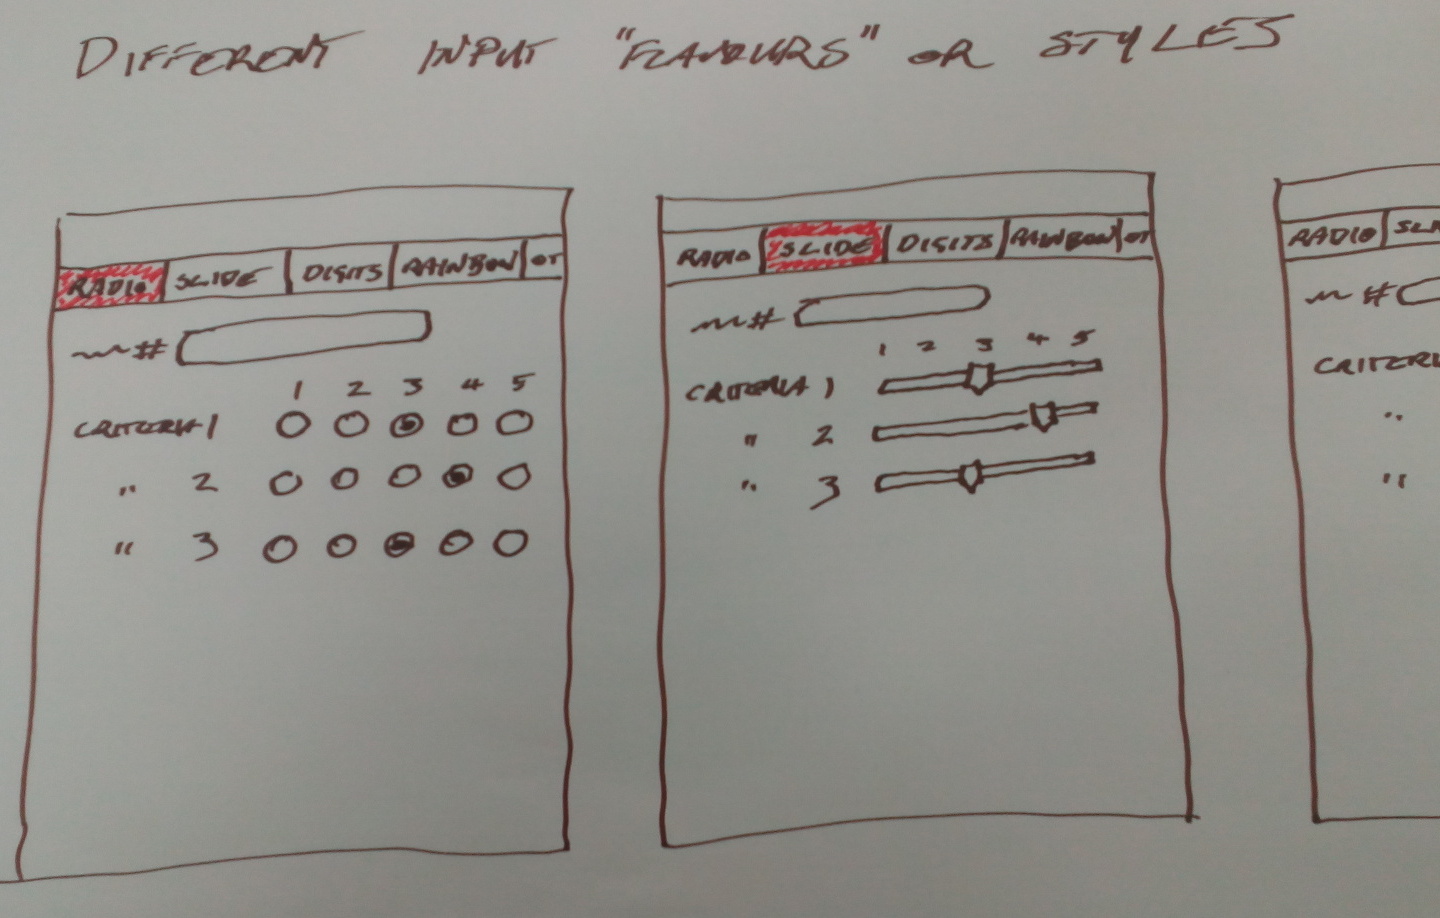 DIFFERENT INPUT "FLAVOURS" OR STYLES
RADIO SLIDE DIGITS RAINBOW OT
#
1 2 3 4 5
CRITERIA 1
" 2
" 3
RADIO SLIDE DIGITS RAINBOW OT
#
1 2 3 4 5
CRITERIA 1
" 2
" 3
RADIO SLI
#
CRITERIA
"
"